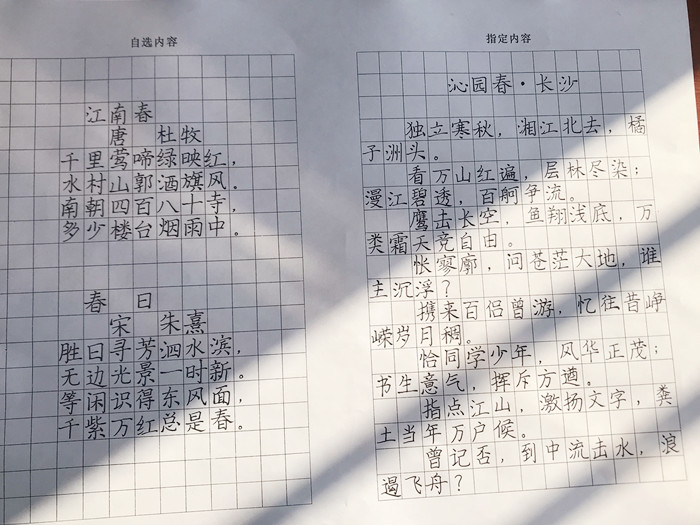 自选内容
江南春
唐 杜牧
千里莺啼绿映红，
水村山郭酒旗风。
南朝四百八十寺，
多少楼台烟雨中。
春 日
宋 朱熹
胜日寻芳泗水滨，
无边光景一时新。
等闲识得东风面，
千紫万红总是春。
指定内容
沁园春·长沙
独立寒秋，湘江北去，橘
子洲头。
看万山红遍，层林尽染；
漫江碧透，百舸争流。
鹰击长空，鱼翔浅底，万
类霜天竞自由。
怅寥廓，问苍茫大地，谁
主沉浮？
携来百侣曾游，忆往昔峥
嵘岁月稠。
恰同学少年，风华正茂；
书生意气，挥斥方遒。
指点江山，激扬文字，粪
土当年万户侯。
曾记否，到中流击水，浪
遏飞舟？